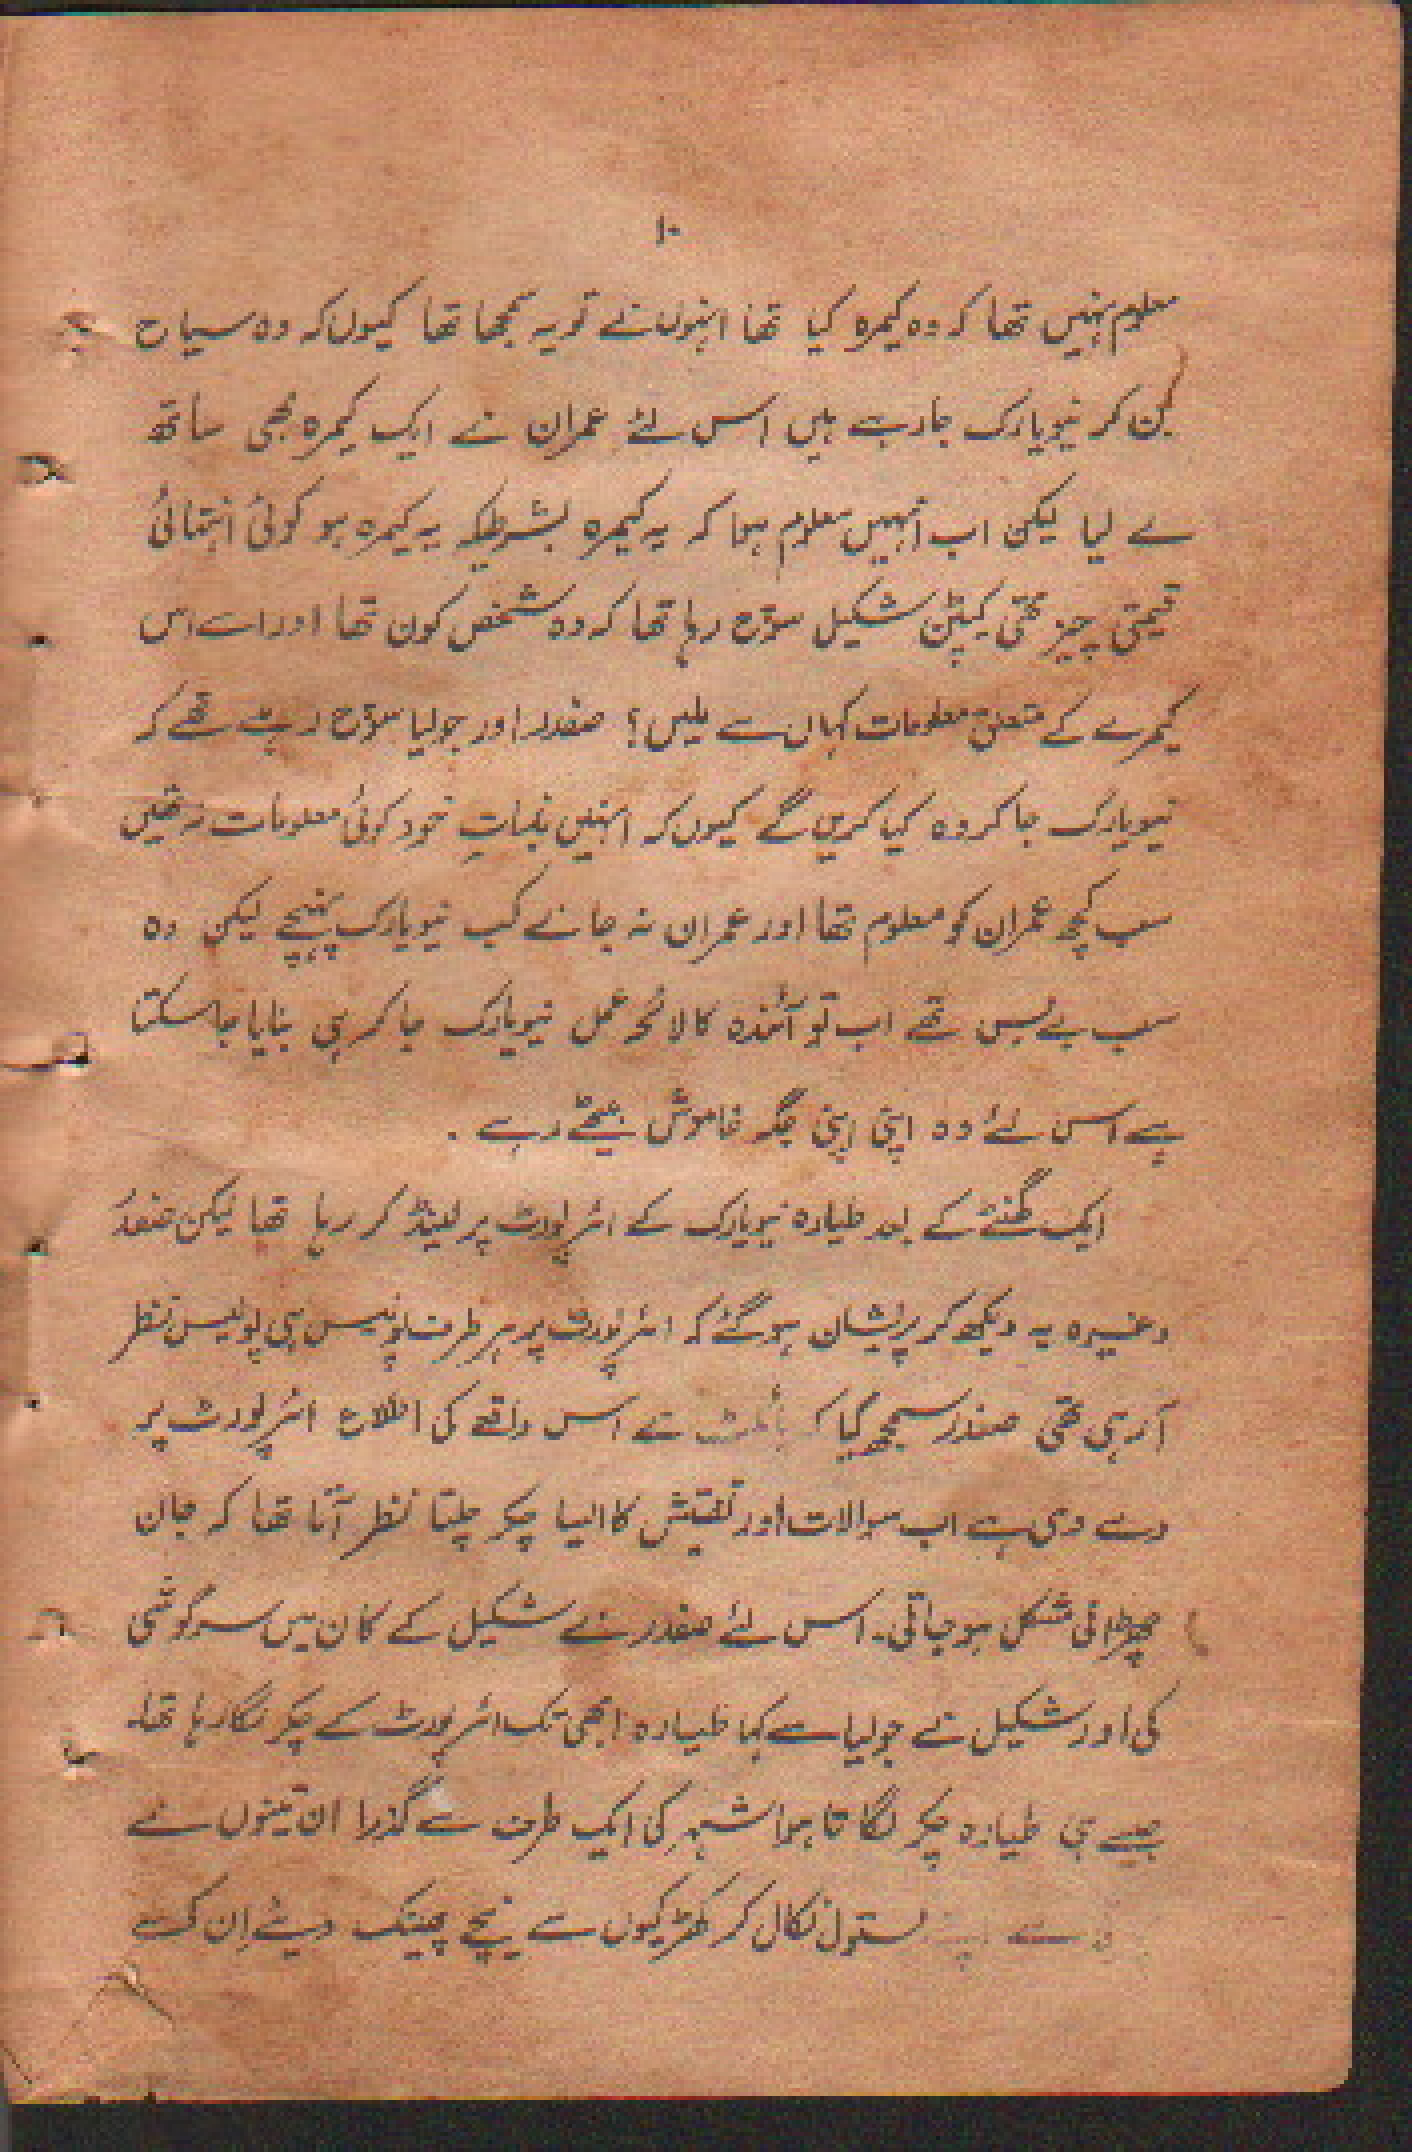 ۱۰
معلوم نہیں تھا کہ وہ کیمرہ کیا تھا انہوں نے تو یہ سمجھا تھا کیوں کہ وہ سیاح
بن کر نیویارک جا رہے ہیں اس لئے عمران نے ایک کیمرہ بھی ساتھ
لے لیا لیکن اب انہیں معلوم ہوا کہ یہ کیمرہ بشرطیکہ یہ کیمرہ ہو کوئی انتہائی
قیمتی چیز تھی کیپٹن شکیل سوچ رہا تھا کہ وہ شخص کون تھا اور اسے اس
کیمرے کے متعلق معلومات کہاں سے ملیں؟ صفدر اور جولیا سوچ رہے تھے کہ
نیویارک جا کر وہ کیا کریں گے کیوں کہ انہیں بذاتِ خود کوئی معلومات نہ تھیں
سب کچھ عمران کو معلوم تھا اور عمران نہ جانے کب نیویارک پہنچے لیکن وہ
سب بے بس تھے اب تو آئندہ کا لائحہ عمل نیویارک جا کر ہی بنایا جا سکتا
ہے اس لئے وہ اپنی اپنی جگہ خاموش بیٹھے رہے ۔
ایک گھنٹے کے بعد طیارہ نیویارک کے ائرپورٹ پر لینڈ کر رہا تھا لیکن صفدر
وغیرہ یہ دیکھ کر پریشان ہو گئے کہ ائرپورٹ پر ہر طرف پولیس ہی پولیس نظر
آ رہی تھی صفدر سمجھ گیا کہ پائلٹ نے اس واقعے کی اطلاع ائرپورٹ پر
دے دی ہے اب سوالات اور تفتیش کا ایسا چکر چلتا نظر آتا تھا کہ جان
چھڑانی مشکل ہو جاتی۔ اس لئے صفدر نے شکیل کے کان میں سرگوشی
کی اور شکیل نے جولیا سے کہا طیارہ ابھی تک ائرپورٹ کے چکر لگا رہا تھا۔
جیسے ہی طیارہ چکر لگاتا ہوا شہر کی ایک طرف سے گذرا ان تینوں نے
سے اپنے پستول نکال کر کھڑکیوں سے نیچے پھینک دیئے اِن کے